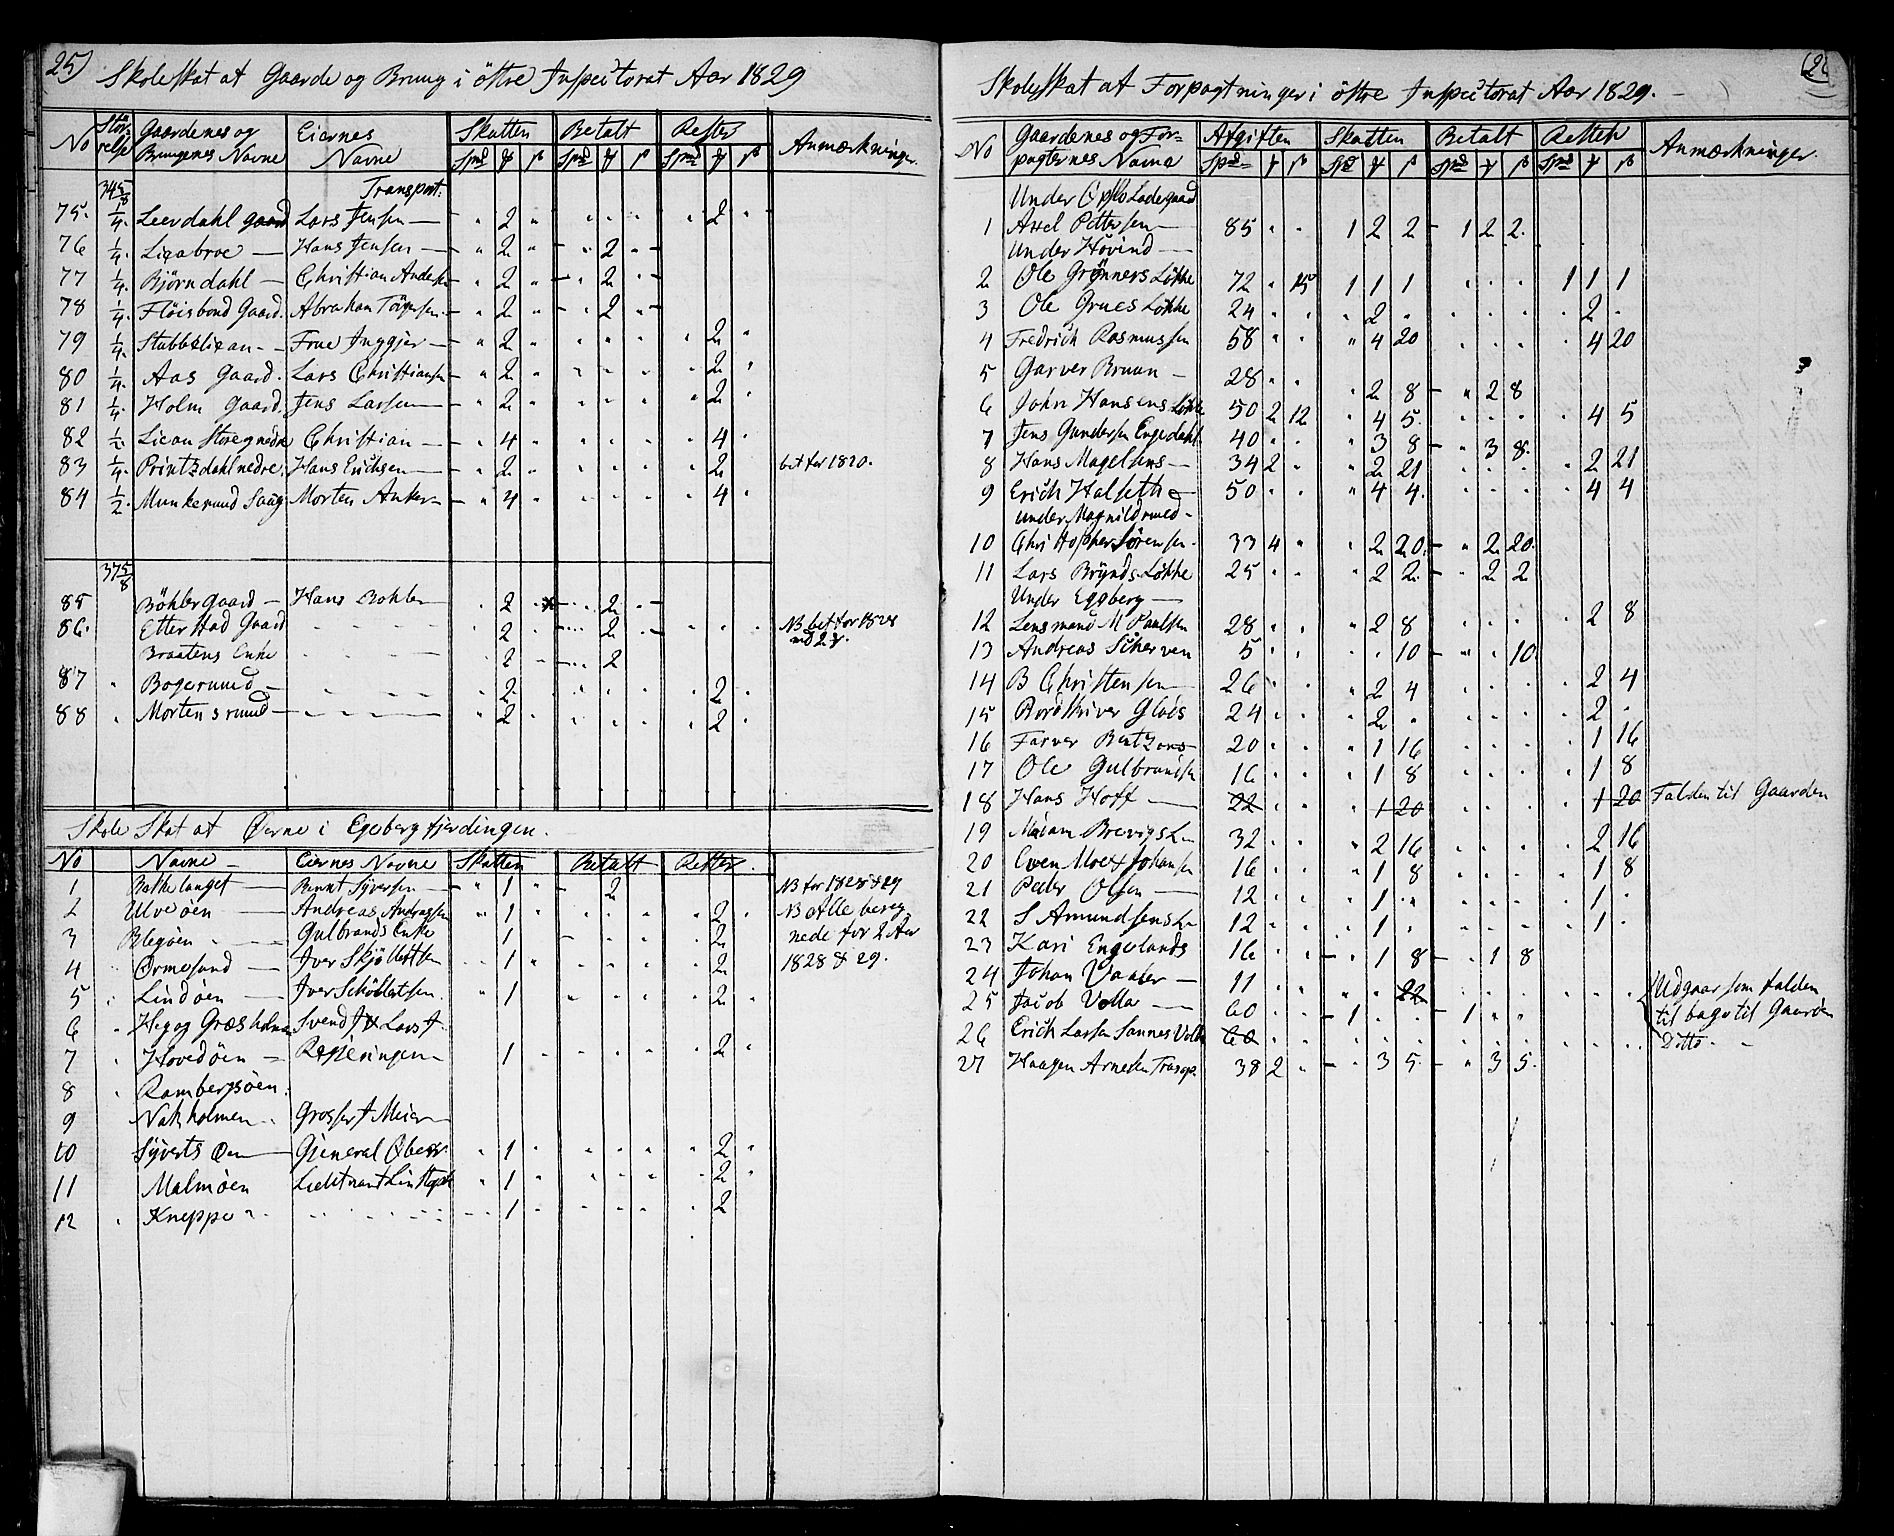 25)
Skoleskat at Gaarde og Brung i östre Inspectorat Aar 1829
No Stör-relse Gaardenes og Brugenes Navne Eiernes Navne Skatten Betalt Rester Anmærkninger
Spd ß Spd ß Spd ß
34 5/8 Transport.
75. 1/4 Leerdahl gaard Lars Jensen 2 2
76 1/4. Licabroe Hans Jensen 2 2
77 1/4. Björndahl Christian Anders 2 2
78 1/4. Flöisbond Gaard. Abraham 2 2
79 1/4. Frue 2 2
80 1/4. Aas Gaard. Lars Christiansen 2 2
81 1/4. Holm Gaard. Jens Larsen 2 2
82 1/2 Lican Store nedre Christian 4 4
83 1/4. Printzdahl nedre. Hans Erichsen 2 2 bet for 1820.
84 1/2. Munkerund Saug Morten Anker 4 4
37 5/8
85 Böhler gaard Hans Bohler 2 2
86. Etterstad Gaard 2 2 NB bet for 1828
Braatens Enke 2 2
87 Bogerund 2 2
88 Mortensrund 2 2
Skole Skat at Öerne i Egeberg fjerdingen.
No Navne Eiernes Navne Skatten Betalt Rester.
1 Bakkelanget Berent Syversen 1 2 NB for 1828 & 29
2 Ulvöen Andreas Andrassen 1 2 NB Alle bereg
3 Blegöen Gulbrands Enke 1 2 nede for 2 Aar
4 Ormesund Iver Skjöllettsen 1 2 1828 & 29.
5 Lindöen Iver 1 2
6 Heg og Græsholmen Svend J & Lars J.
7 Hovedöen Regieringen 1 2
8 Rambergsöen.
9 Nakholmen Grosser J Meier
10 Syverts Öen General 1 2
11 Malmöen Lieutnant 1 2
12 Kneppe 1 2
Skoleskat at Forpagtninger i östre Inspectorat Aar 1829.
No Gaardenes og For-pagternes Navne Afgiften Skatten Betalt Resten Anmærkninger.
Spd ß Spd ß Spd ß Spd ß
Under Opslo Ladegaard
1 Axel Pettersen 85 1 2 2 1 2 2.
Under Hövind
2 Ole Grönners Lökke 72 15 1 1 1 1 1 1
3 Ole Grues Lökke 24 2 2
4 Fredrich Rasmussen 58 4 20 4 20
5 Garver Bruun 28 2 8 2 8
6 John Hansens Lökke 50 2 12 4 5. 4 5
7 Jens Gundersen Engedahl 40 3 8 3 8.
8 Hans Magelsens 34 2 2 21 2 21
9 Erich Halseth 50 4 4. 4 4
under Magnildrued
10 Christopher Sörensen. 33 4 2 20. 2 20.
11 Lars Brynds Lökke 25 2 2 2 2
Under Egeberg
12 Lensmand M Paulsen 28 2 8 2 8
13 Andreas Scherven 5 10 10
14 B Christensen 26 2 4 2 4
15 24 2 2
16 Farver 20 1 16 1 16
17 Ole Gulbrandsen 16 1 8 1 8
18 Hans Hoff 22 1 20 1 20 Falden til Gaarden
19 32 2 16 2 16
20 Even Moe & Johansen 16 1 8 1 8
21 Peder Olsen 12 1 1
22 S Amundsens L 12 1 1
23 Kari Engelands 16 1 8 1 8
24 Johan Vaaler 11 22 Udgaar som falden
25 Jacob Volla 60 1 1 til bage til Gaarden
26 Erich Larsen Sannes Volla 60 Ditto
27 Haagen Arnesen 38 2 3 5 3 5.